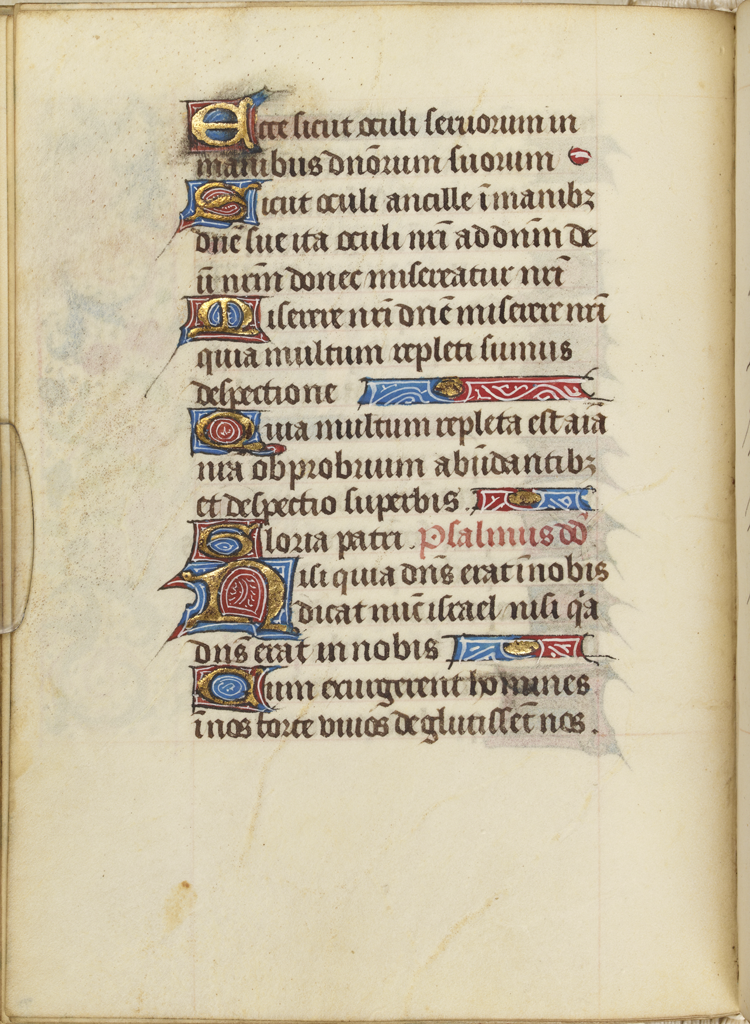 Ecce sicut oculi seruorum in
manibus dnōrum suorum
Sicut oculi ancille ī manibꝫ
dnē sue ita oculi nr̄i ad dnm̄ de
ū nrm̄ donec misereatur nr̄i
Miserere nr̄i dnē miserere nr̄i
quia multum repleti sumus
despectione
Quia multum repleta est aīa
nr̄a obprobrium abūdantibꝫ
et despectio superbis .
Gloria patri . Psalmus dd̄.
Nisi quia dns̄ erat ī nobis
dicat nūc israel nisi qᵃa
dns̄ erat in nobis
Cum exurgerent homines
ī nos forte viuos deglutissēt nos .